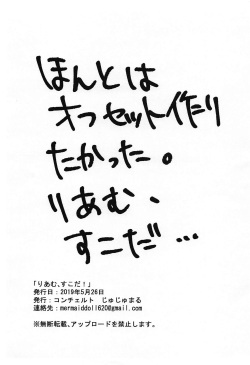 ほんとは
オフセット作りたり
たかった。
りあむ、
すこだ…
「りあむ、すこだ！」
発行日：2019年5月26日
発行：コンチェルト　じゅじゅまる
連絡先：mermaiddoll620@gmail.com
※無断転載、アップロードを禁止します。